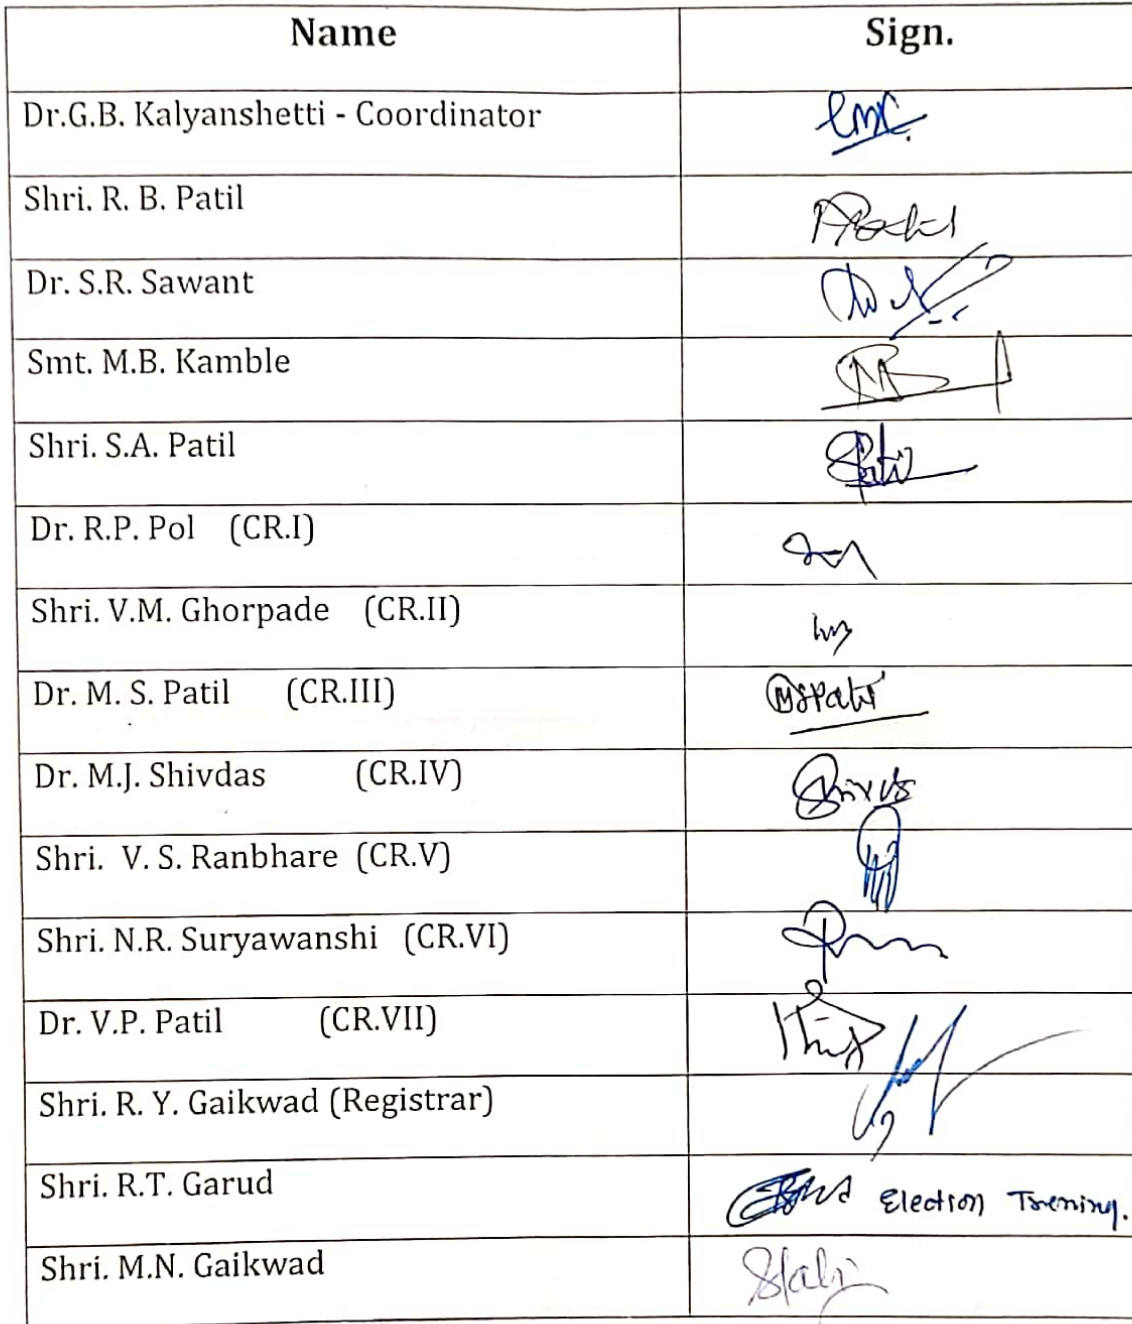 Name Sign.
Dr.G.B. Kalyanshetti - Coordinator
Shri. R. B. Patil
Dr. S.R. Sawant
Smt. M.B. Kamble
Shri. S.A. Patil
Dr. R.P. Pol (CR.I)
Shri. V.M. Ghorpade (CR.II)
Dr. M. S. Patil (CR.III) MSPatil
Dr. M.J. Shivdas (CR.IV)
Shri. V. S. Ranbhare (CR.V)
Shri. N.R. Suryawanshi (CR.VI)
Dr. V.P. Patil (CR.VII)
Shri. R. Y. Gaikwad (Registrar)
Shri. R.T. Garud Election Trening.
Shri. M.N. Gaikwad